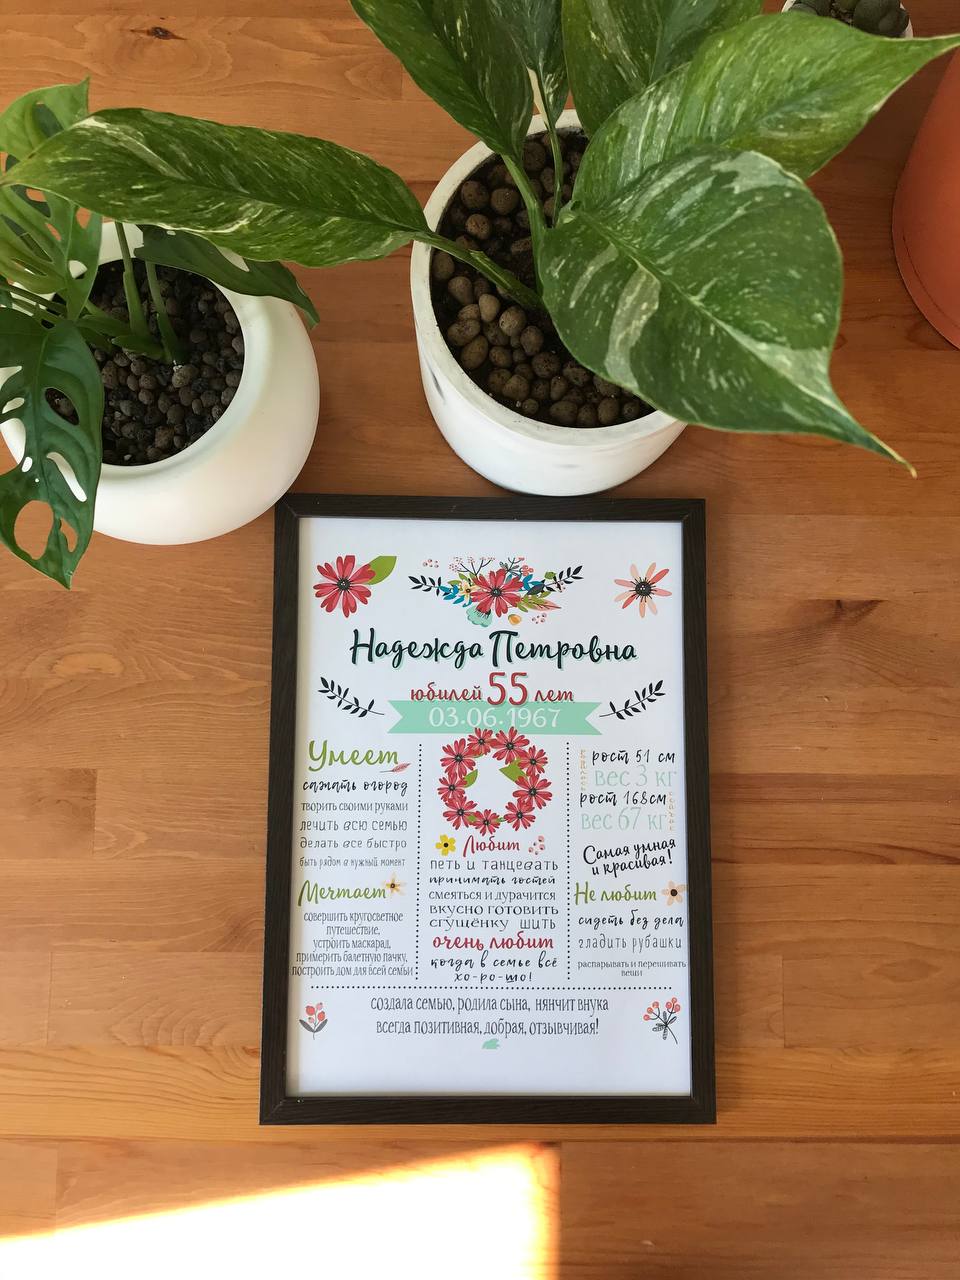 Надежда Петровна
юбилей 55 лет
03.06.1967
Умеет
сажать огород
творить своими руками
лечить всю семью
делать все быстро
быть рядом в нужный момент
Мечтает
совершить кругосветное
путешествие,
устроить маскарад,
примерить балетную пачку,
построить дом для всей семьи
Любит
петь и танцевать
принимать гостей
смеяться и дурачится
вкусно готовить
сгущёнку шить
очень любит
когда в семье всё
хо-ро-шо!
рост 51 см
вес 3 кг
рост 168см
вес 67 кг
Самая умная
и красивая!
Не любит
сидеть без дела
гладить рубашки
распарывать и перешивать
вещи
создала семью, родила сына, нянчит внука
всегда позитивная, добрая, отзывчивая!